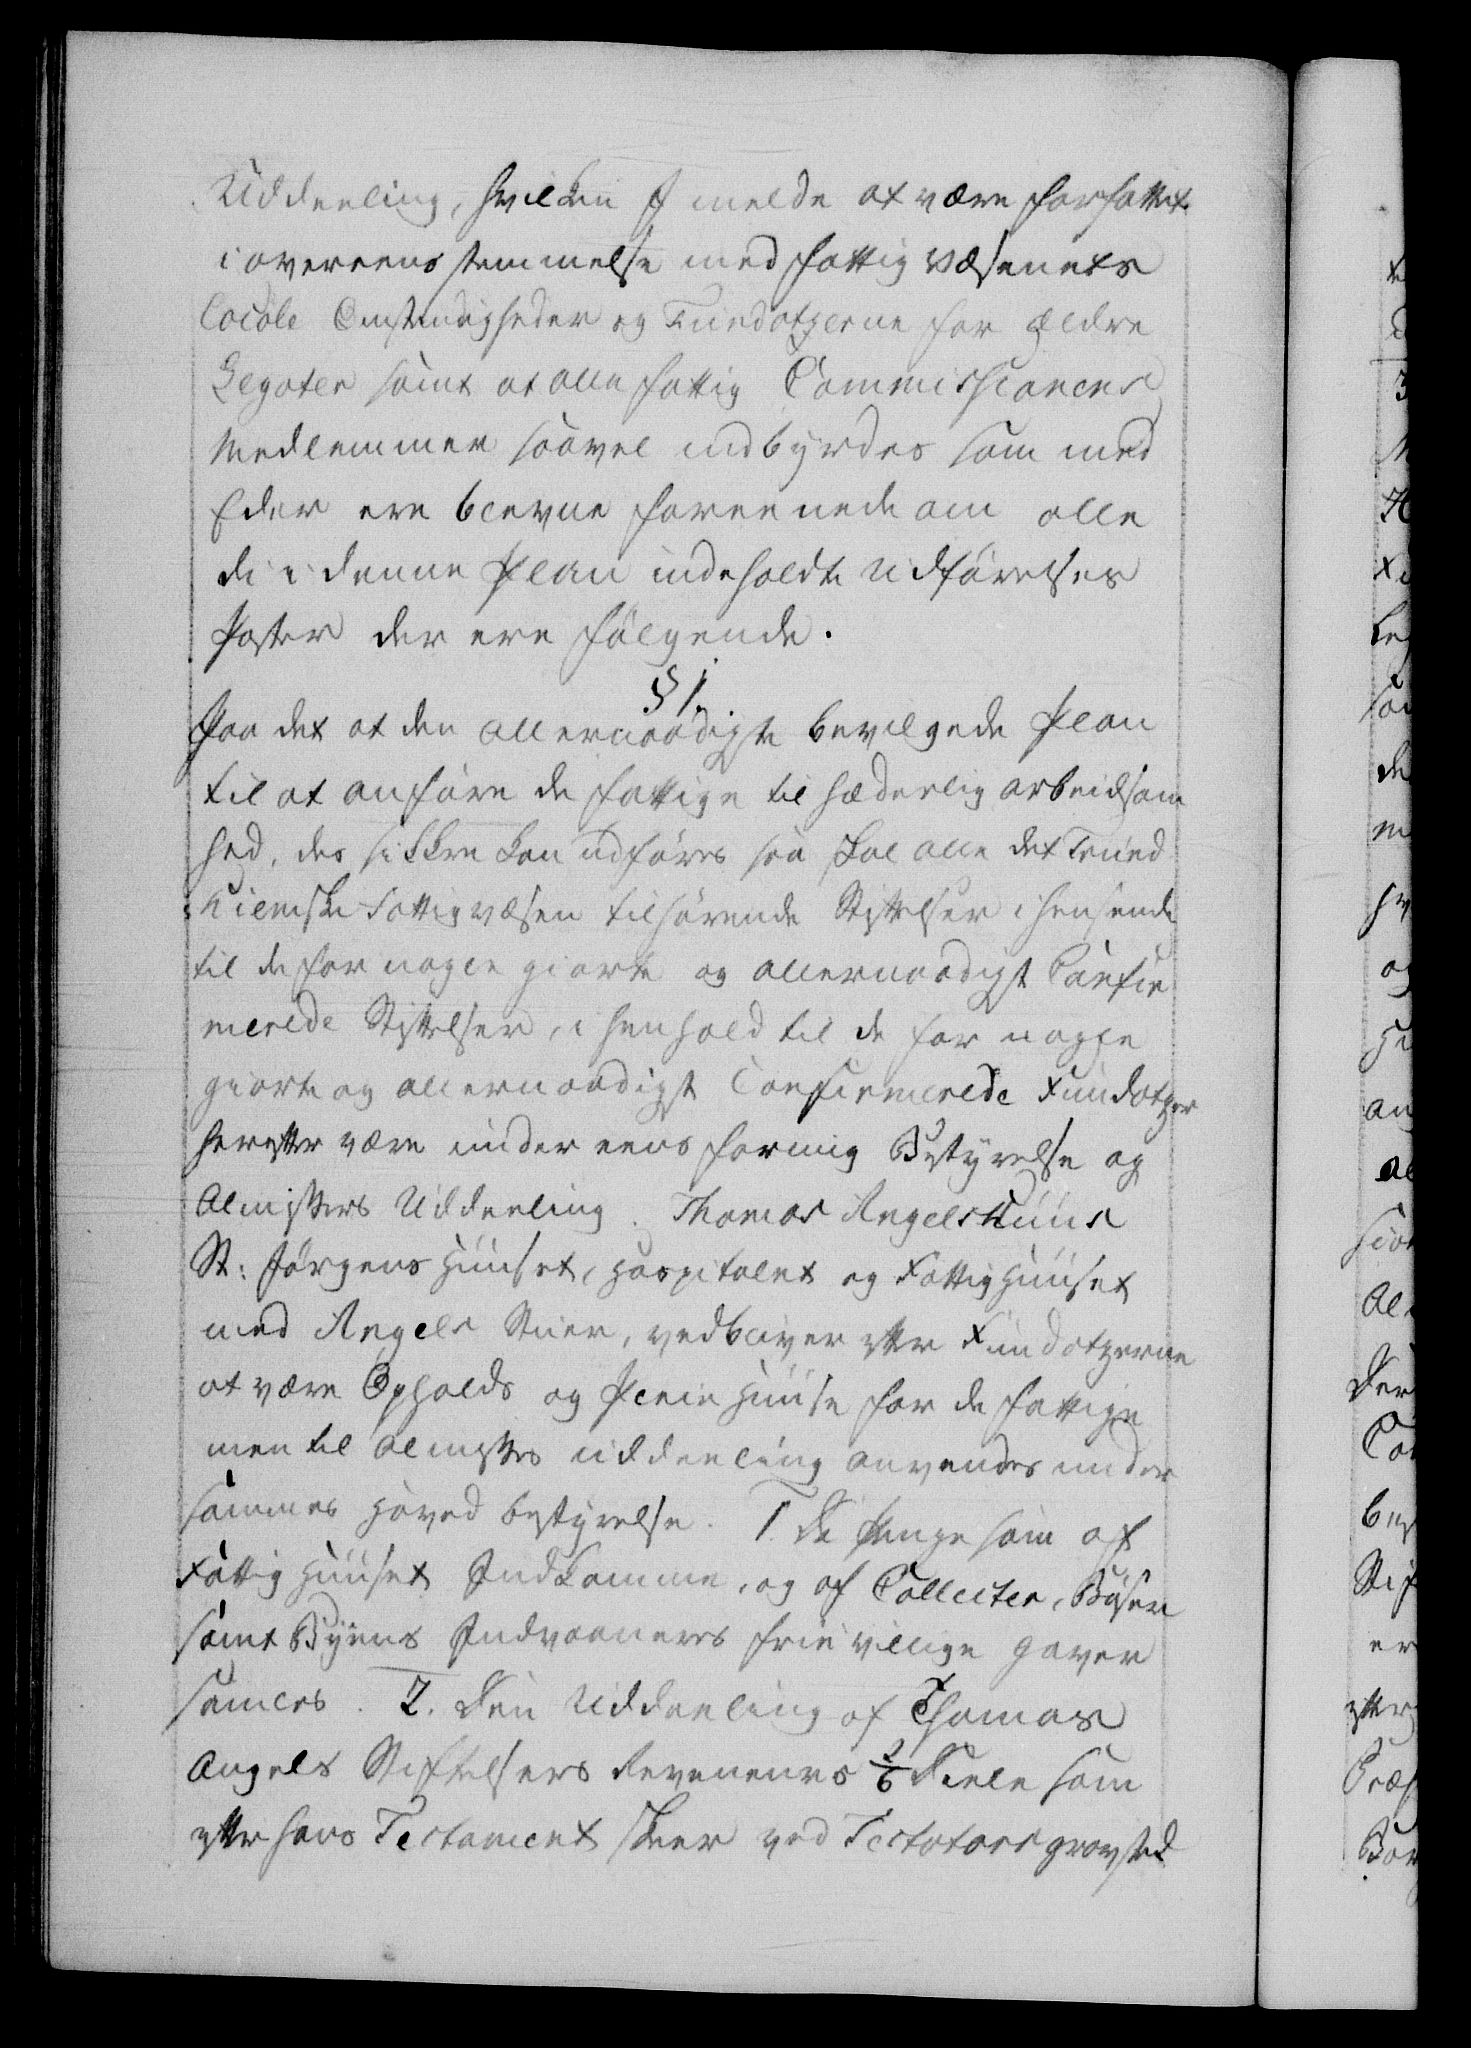 Uddeeling, hvilken I melde at være forfattet
i overeensstemmelse med Fattig Væsenets
locale Omstændigheder og Fundatzerne for ældre
Legater samt at alle Fattig Commissionens
Medlemmer saavel indbyrdes som med
Eder ere blevne foreenede om alle
de i denne Plan indeholdte Udførelses
Poster der ere følgende.
§ 1.
Paa det at den allernaadigst bevilgede Plan
til at anføre de fattige til hæderlig arbeidsom
hed, des sikkre kan udføres saa skal alle det Trund
hiemske Fattigvæsen tilhørende Stiftelser i henseende
til de for nogle giorte og allernaadigst Confir
merede Stiftelser, i henhold til de for nogle
giorte og allernaadigst Confirmerede Fundatzer
herefter være under eens formig Bestyrelse og
Almisses Uddeeling. Thomas Angels Huus
St: Jørgens Huuset, Hospitalet og Fattighuuset
med Angels Stuer, vedbliver efter Fundatzerne
at være Opholds og Pleie Huuse for de fattige
men til almisses uddeeling anvendes under
sammes Hoved bestyrelse. 1. De Penge som af
Fattig Huuset Indkomme, og af Collecter, Bøser
samt Byens Indvaaneres frievillige Gaver
samles. 2. Den Uddeeling af Thomas
Angels Stiftelsers Revenuers 2/6 Deele som
efter hans Testament skeer ved Testators gravsted